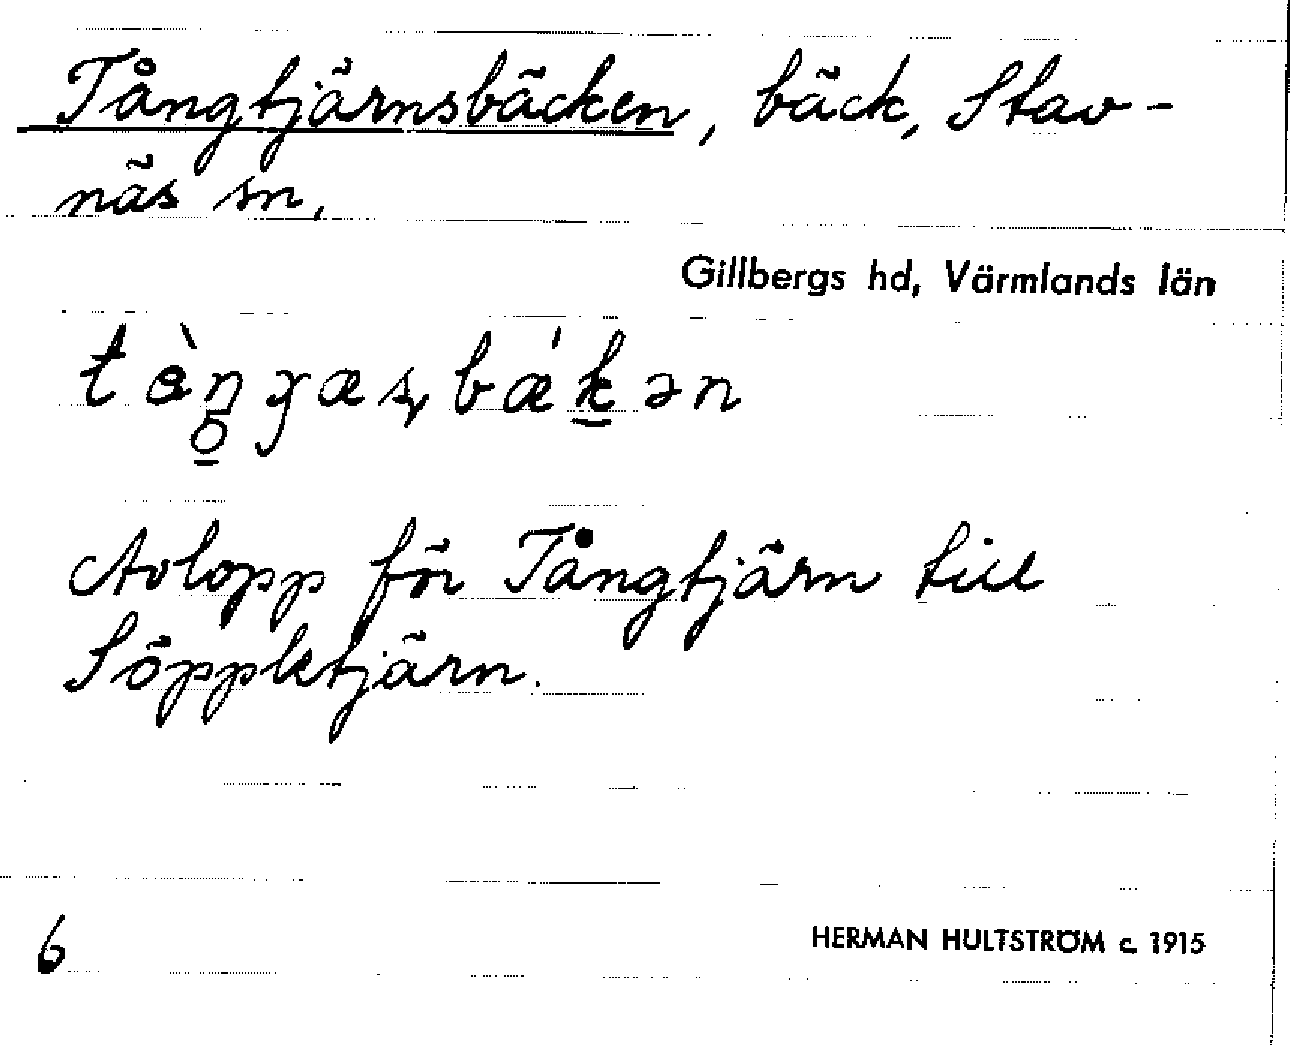 Tångtjärnsbäcken, bäck, Stav-
näs sn,
Gillbergs hd, Värmlands län
Avlopp för Tångtjärn till
Söppletjärn.
6
HERMAN HULTSTRÖM c. 1915